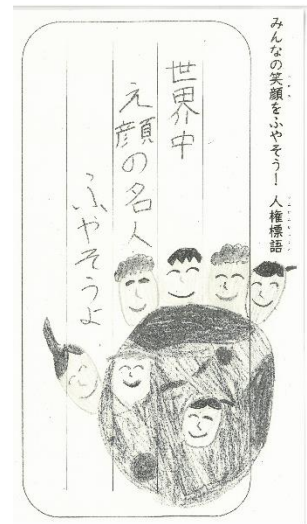 みんなの笑顔をふやそう！ 人権標語
世界中
え顔の名人
ふやそうよ